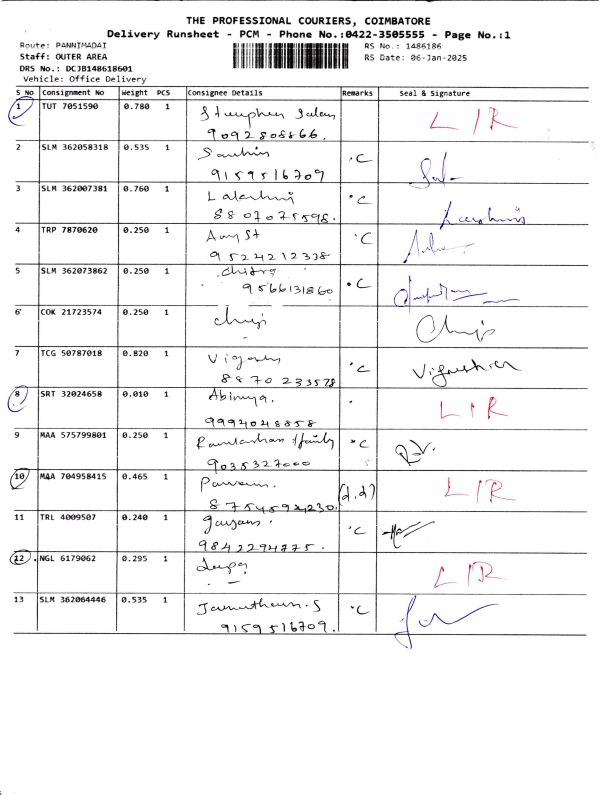 THE PROFESSIONAL COURIERS, COIMBATORE
Delivery Runsheet - PCM - Phone No.:0422-3505555 - Page No.:1
Route: PANNIMADAI
RS No.: 1486186
Staff: OUTER AREA
RS Date: 06-Jan-2025
DRS No.: DCJB148618601
Vehicle: Office Delivery
S No Consignment No Weight PCS Consignee Details Remarks Seal & Signature
1 TUT 7051590 0.780 1 L/R
9092808866.
2 SLM 362058318 0.535 1 °C
9159516709
3 SLM 362007381 0.760 1 °C
8807075598.
4 TRP 7870620 0.250 1 °C
9524212338
5 SLM 362073862 0.250 1 Chitra °C
9566131860
6 COK 21723574 0.250 1
7 TCG 50787018 0.820 1 °C
8870233578
8 SRT 32024658 0.010 1 Abinaya. L/R
9994048858
9 MAA 575799801 0.250 1 °C
9035327000
10 MAA 704958415 0.465 1 (d.d) L/R
8754594230.
11 TRL 4009507 0.240 1 °C
9842294775.
12 NGL 6179062 0.295 1 L/R
13 SLM 362064446 0.535 1 °C
9159516709.